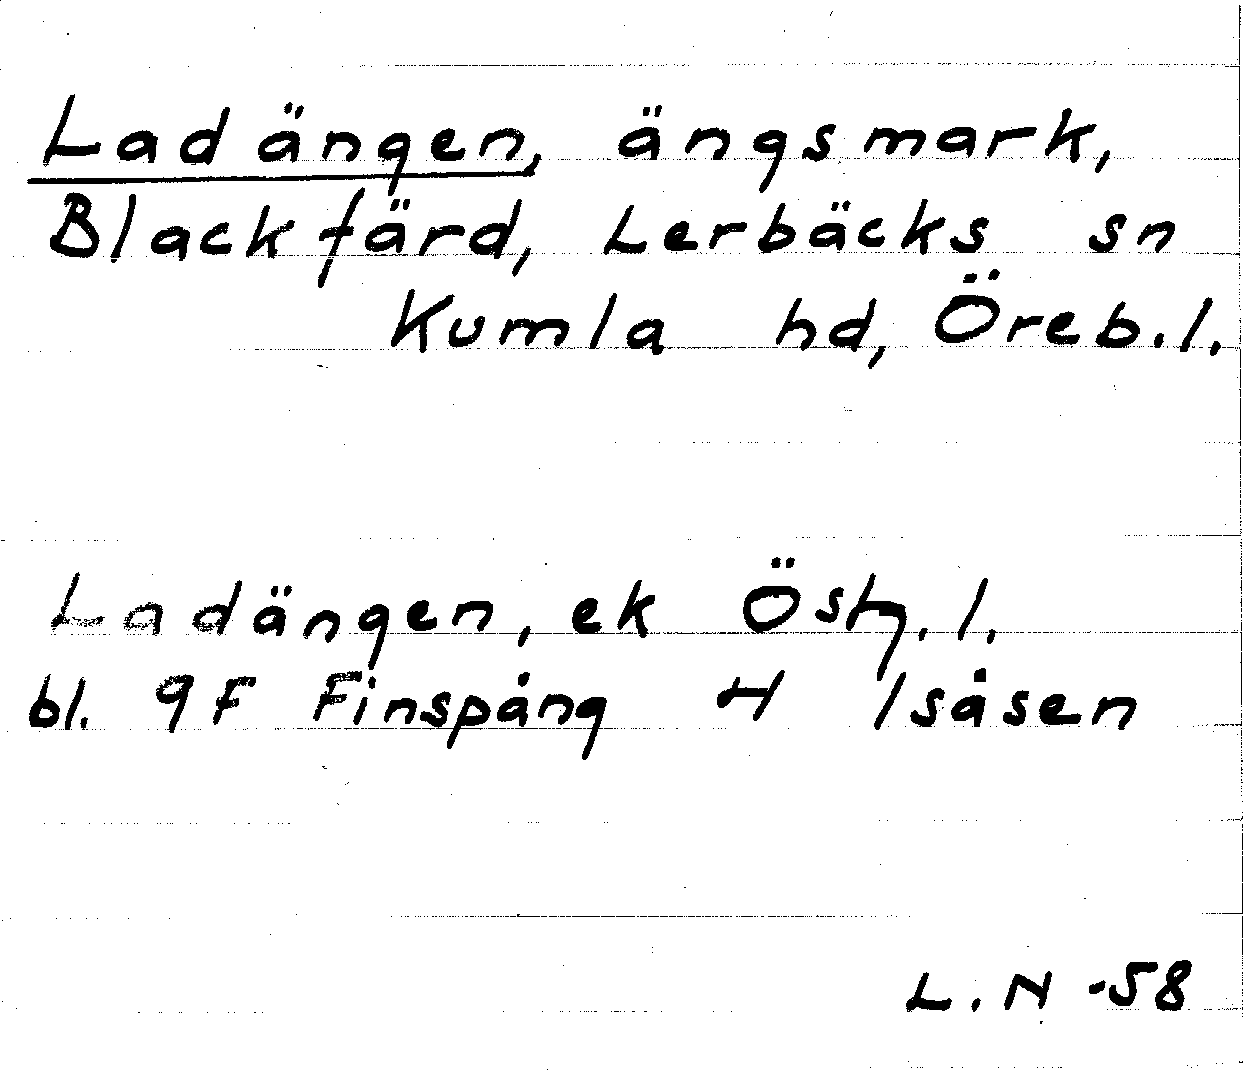 Ladängen, ängsmark,
Blackfärd, Lerbäcks sn
Kumla hd, Öreb.l.
Ladängen, ek Östg.l.
bl. 9F Finspång 4 Isåsen
L.N -58